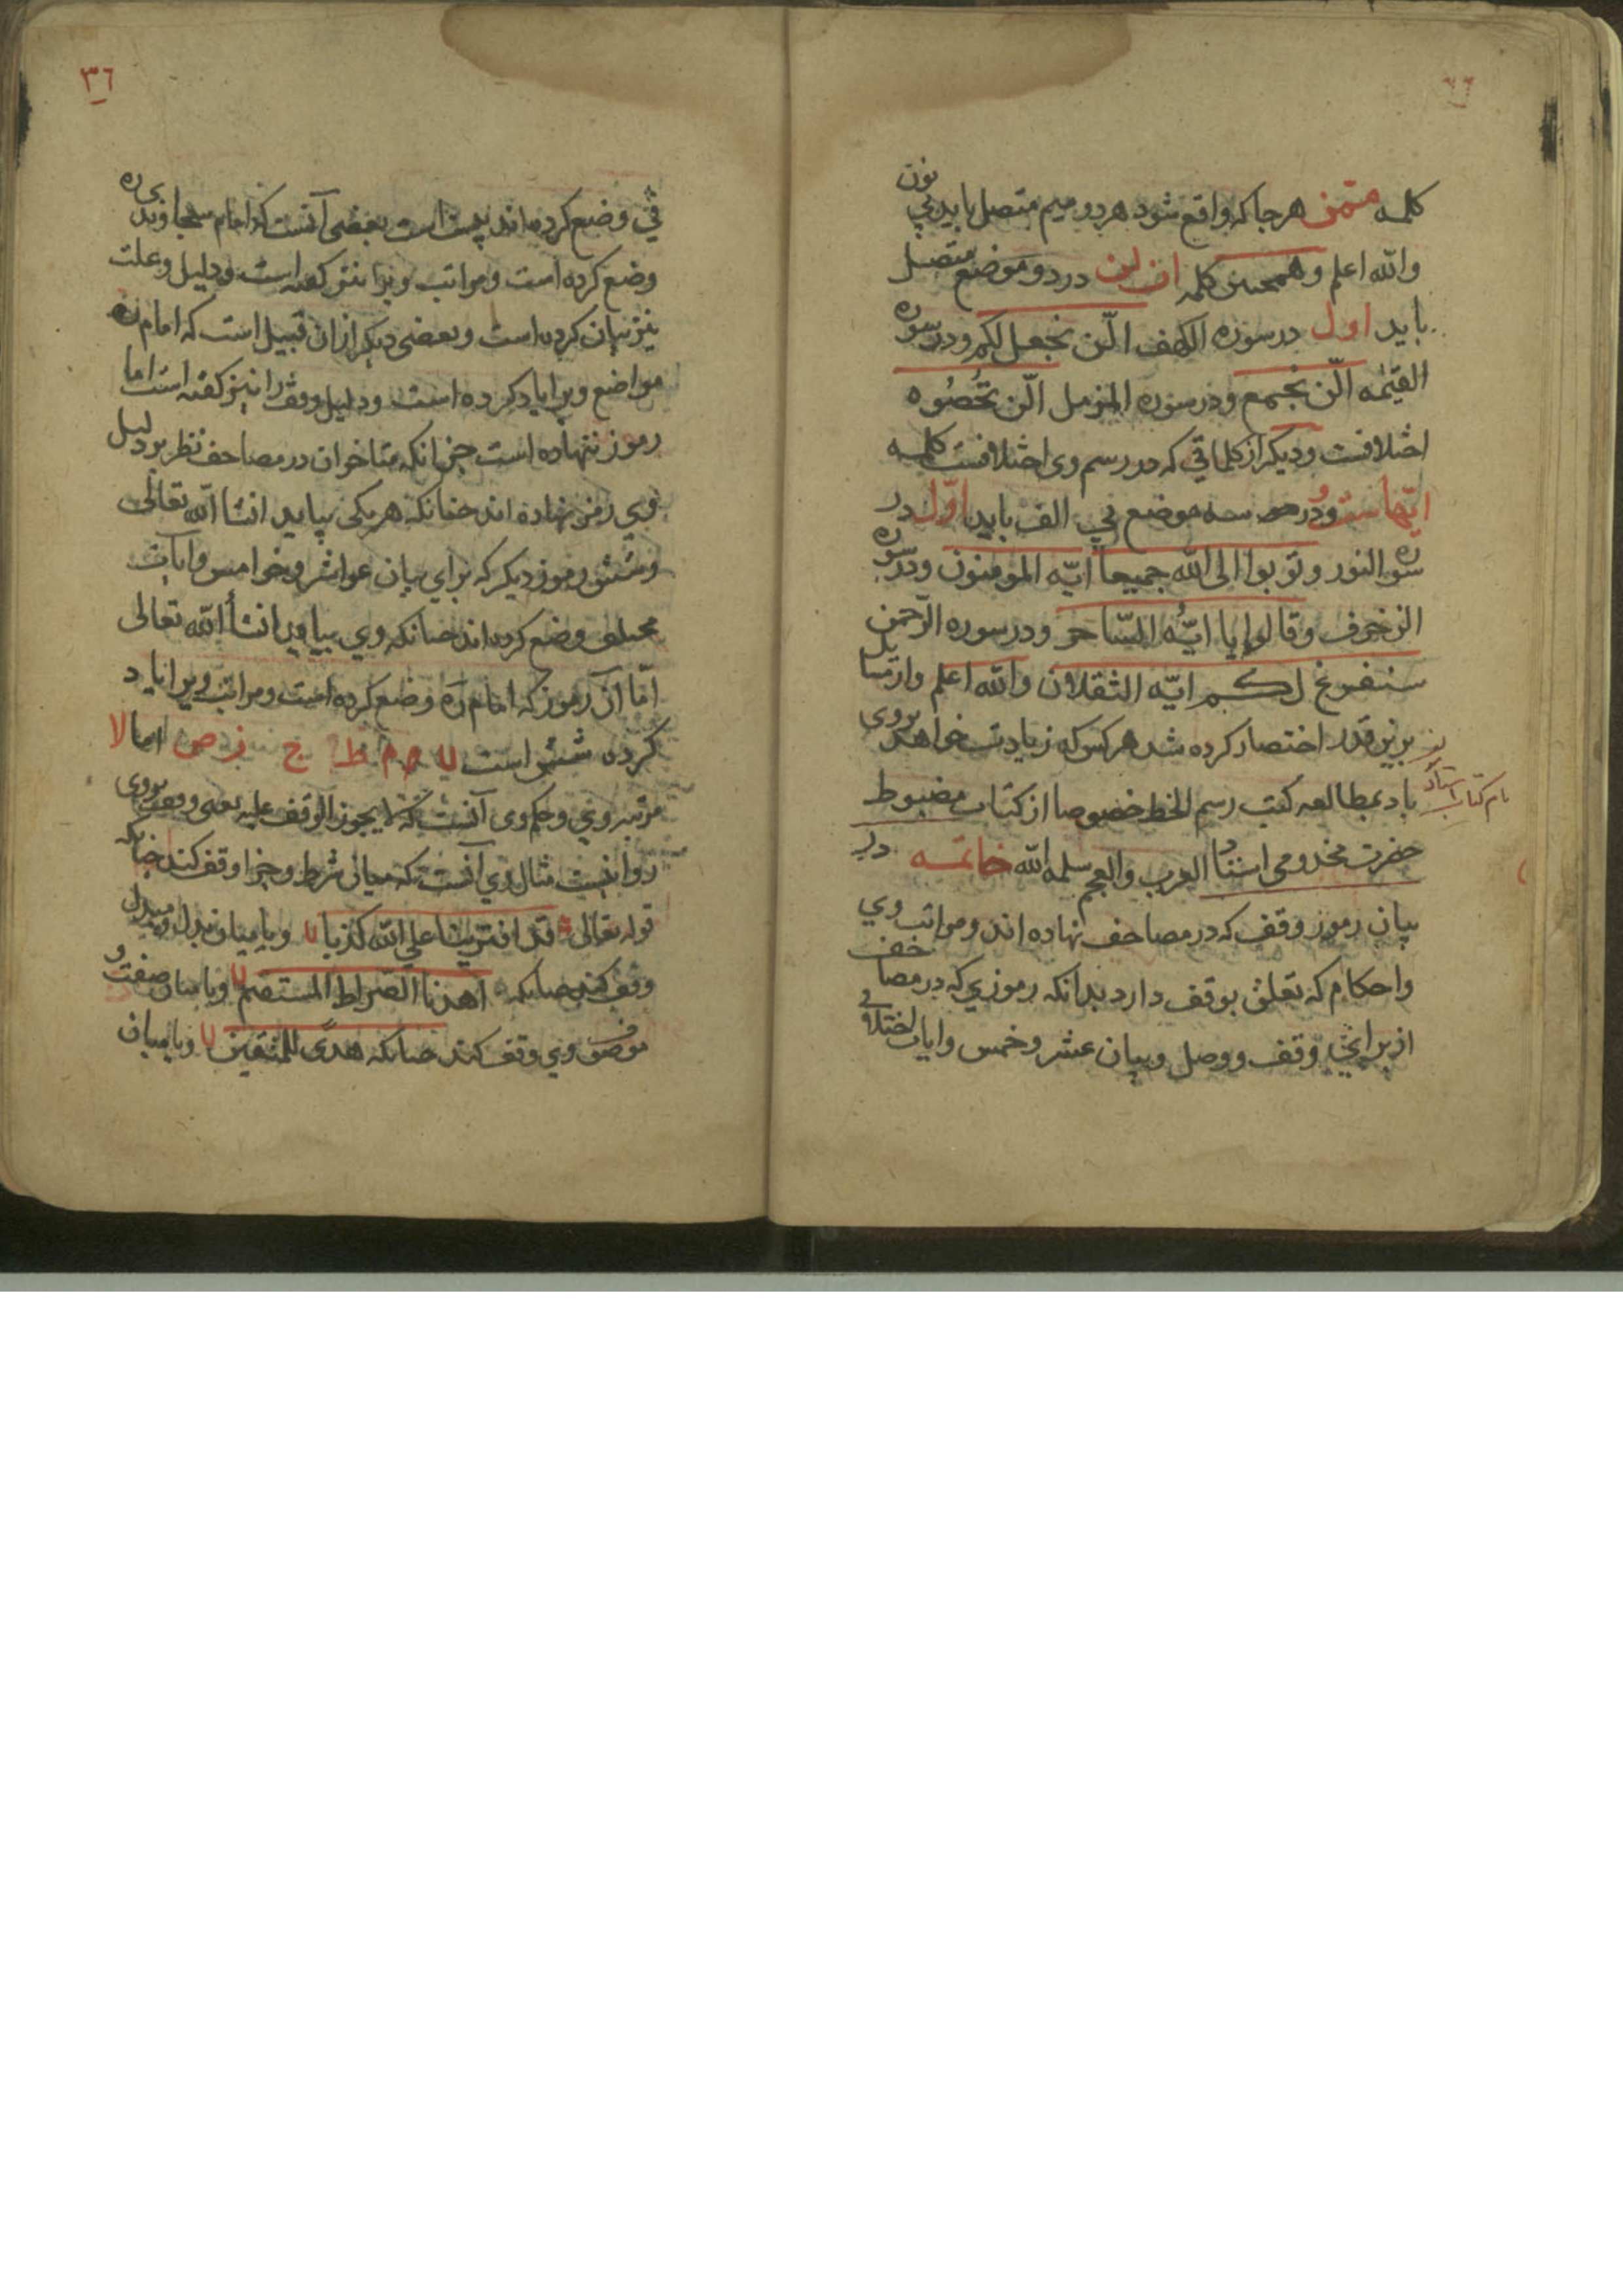 کلمه ممّن هرجا که واقع شود هر دو میم متصل باید بی نون
والله اعلم و همچنین کلمه ان لن در دو موضع متصل
باید اول در سوره الکهف الّن نجعل لکم و در سوره
القیٰمه الّن نجمع و در سوره المزمل الّن تُحصُوه
اختلافست و دیکر از کلماتی که در رسم وی اختلافست کلمه
ایّهاست و در سه موضع بی الف باید اوّل در
سوره النور و توبوا الی الله جمیعا ایّه المومنون و در سوره
الزخرف و قالوا یا ایّه السّاحر و در سوره الرّحمن
سنفرغ لکم ایّه الثقلان والله اعلم و ازینها
برین قدر اختصار کرده شد هر کس که زیادت خواهد بروی
باد بمطالعه کتب رسم الخط خصوصا از کتاب مضبوط
نام کتاب استاد
حضرت مخدومی استاد العرب والعجم سلمه الله خاتمه در
بیان رموز وقف که در مصاحف نهاده اند و مراتب وی
واحکام که تعلق بوقف دارد بدانکه رموزی که در مصاحف
از برای وقف و وصل و بیان عشر و خمس و ایات اختلافی
٣٦
فی وضع کرده اند بعضی آنست که امام سجاوندی ره
وضع کرده است و مراتب ویرا نیز کفته است و دلیل و علت
نیز بیان کرده است و بعضی دیکر ازان قبیل است که امام ره
مواضع ویرا یاد کرده است و دلیل وقف را نیز کفته است اما
رموز ننهاده است چنانکه متاخران در مصاحف نظر بدلیل
وی رمز نهاده اند چنانکه هر یکی بیاید انشا الله تعالی
و شش رموز دیکر که برای بیان عواشر و خوامس و ایات
مختلف وضع کرده اند چنانکه وی بیاید انشأ الله تعالی
امّا آن رموز که امام ره وضع کرده است و مراتب ویرا یاد
کرده شش است لا م ط ج ز ص اما لا
مرتبه وی و حکم وی آنست که لا یجوز الوقف علیه یعنی وقف بروی
روا نیست مثال وی آنست که میان شرط و جزا وقف کند چنانکه
قوله تعالی قد افترینا علی الله کذبا لا و یا میان بدل و مبدل
وقف کند چنانکه اهدنا الصراط المستقیم لا و یا میان صفت و
موصوف وی وقف کند چنانکه هدًی للمتقین لا و یا میان